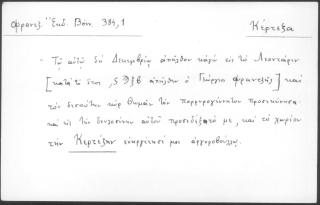 Φραντζ. Ἔκδ. Βόν. 384,1
Κέρτεζα
Τῷ αὐτῷ δὲ Δεκεμβρίῳ ἀπῆλθον κἀγὼ εἰς τὸ Λεοντάριν
[κατὰ τὸ ἔτος ,ςϠξβ ἀπῆλθεν ὁ Γεώργιος Φραντζῆς] καὶ
τὸν δεσπότην κὺρ Θωμᾶν τὸν πορφυρογέννητον προσεκύνησα·
καὶ εἰς τὴν δουλοσύνην αὐτοῦ προσεδέξατό με, καὶ τὸ χωρίον
τὴν Κέρτεζαν εὐηργέτησέ μοι ἀργυροβούλλῳ.